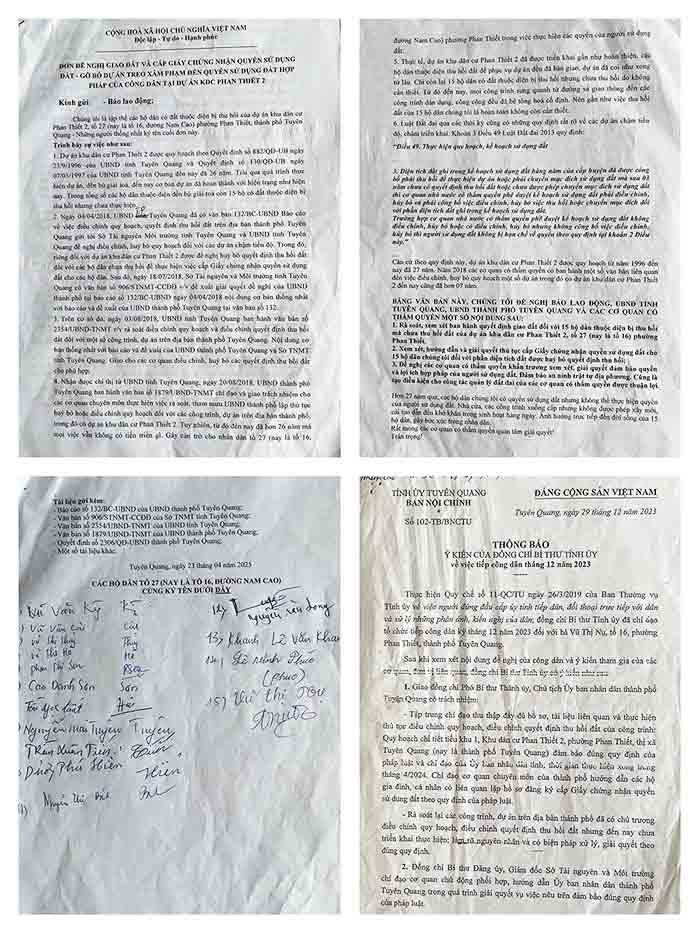 CỘNG HOÀ XÃ HỘI CHỦ NGHĨA VIỆT NAM
Độc lập - Tự do - Hạnh phúc
ĐƠN ĐỀ NGHỊ GIAO ĐẤT VÀ CẤP GIẤY CHỨNG NHẬN QUYỀN SỬ DỤNG
ĐẤT - GỠ BỎ DỰ ÁN TREO XÂM PHẠM ĐẾN QUYỀN SỬ DỤNG ĐẤT HỢP
PHÁP CỦA CÔNG DÂN TẠI DỰ ÁN KDC PHAN THIẾT 2
Kính gửi - Báo lao động;
Chúng tôi là tập thể các hộ dân có đất thuộc diện bị thu hồi của dự án khu dân cư
Phan Thiết 2, tổ 27 (nay là tổ 16, đường Nam Cao) phường Phan Thiết, thành phố Tuyên
Quang - Những người thống nhất ký tên cuối đơn này.
Trình bày sự việc như sau:
1. Dự án khu dân cư Phan Thiết 2 được quy hoạch theo Quyết định số 882/QĐ-UB ngày
23/9/1996 của UBND tỉnh Tuyên Quang và Quyết định số 130/QĐ-UB ngày
07/03/1997 của UBND tỉnh Tuyên Quang đến nay đã 26 năm. Trải qua quá trình thực
hiện dự án, đền bù giải toả, đến nay cơ bản dự án đã hoàn thành với hiện trạng như hiện
nay. Trong tổng số các hộ dân thuộc diện đền bù giải toả còn 15 hộ có đất thuộc diện bị
thu hồi nhưng chưa thực hiện.
2. Ngày 04/04/2018, UBND Tuyên Quang đã có văn bản 132/BC-UBND Báo cáo
về việc điều chỉnh quy hoạch, quyết định thu hồi đất trên địa bàn thành phố Tuyên
Quang gửi tới Sở Tài nguyên Môi trường tỉnh Tuyên Quang và UBND tỉnh Tuyên
Quang để nghị điều chỉnh, huỷ bỏ quy hoạch đối với các dự án chậm tiến độ. Trong đó,
riêng đối với dự án khu dân cư Phan Thiết 2 được đề nghị huỷ bỏ quyết định thu hồi đất
đối với các hộ dân chưa thu hồi để thực hiện việc cấp Giấy chứng nhận quyền sử dụng
đất cho các hộ dân. Sau đó, ngày 18/07/2018, Sở Tài nguyên và Môi trường tỉnh Tuyên
Quang có văn bản số 906/STNMT-CCĐĐ v/v đề xuất giải quyết đề nghị của UBND
thành phố tại báo cáo số 132/BC-UBND ngày 04/04/2018 nội dung cơ bản thống nhất
với báo cáo và đề xuất của UBND thành phố Tuyên Quang tại văn bản số 132.
3. Trên cơ sở đó, ngày 03/08/2018, UBND tỉnh Tuyên Quang ban hành văn bản số
2354/UBND-TNMT v/v rà soát điều chỉnh quy hoạch và điều chỉnh quyết định thu hồi
đất đối với một số công trình, dự án trên địa bàn thành phố Tuyên Quang. Nội dung cơ
bản thống nhất với báo cáo và đề xuất của UBND thành phố Tuyên Quang và Sở TNMT
tỉnh Tuyên Quang. Giao cho các cơ quan điều chỉnh, huỷ bỏ các quyết định thu hồi đất
cho phù hợp.
4. Nhận được chỉ thị từ UBND tỉnh Tuyên Quang, ngày 20/08/2018, UBND thành phố
Tuyên Quang ban hành văn bản số 1879/UBND-TNMT chỉ đạo và giao trách nhiệm cho
các cơ quan chuyên môn thực hiện việc rà soát, tham mưu UBND thành phố lập thủ tục
huỷ bỏ hoặc điều chỉnh quy hoạch đối với các công trình, dự án trên địa bàn thành phố,
trong đó có dự án khu dân cư Phan Thiết 2. Tuy nhiên, từ đó đến nay đã hơn 26 năm mà
mọi việc vẫn không có tiến triển gì. Gây cản trở cho nhân dân tổ 27 (nay là tổ 16,
đường Nam Cao) phường Phan Thiết trong việc thực hiện các quyền của người sử dụng
đất.
5. Thực tế, dự án khu dân cư Phan Thiết 2 đã được triển khai gần như hoàn thiện, các
hộ dân thuộc diện thu hồi đất để phục vụ dự án đều đã bàn giao, dự án đã coi như xong
từ lâu. Chỉ còn lại 15 hộ dân có đất thuộc diện bị thu hồi nhưng chưa thu hồi do không
cần thiết. Từ đó đến nay, mọi công trình xung quanh từ đường xá giao thông đến các
công trình dân dụng, công cộng đều đã bê tông hoá cố định. Nên gần như việc thu hồi
đất của 15 hộ dân chúng tôi là hoàn toàn không còn cần thiết.
6. Luật Đất đai qua các thời kỳ cũng có những quy định rất rõ về các dự án chậm tiến
độ, chậm triển khai. Khoản 3 Điều 49 Luật Đất đai 2013 quy định:
"Điều 49. Thực hiện quy hoạch, kế hoạch sử dụng đất
3. Diện tích đất ghi trong kế hoạch sử dụng đất hàng năm của cấp huyện đã được công
bố phải thu hồi để thực hiện dự án hoặc phải chuyển mục đích sử dụng đất mà sau 03
năm chưa có quyết định thu hồi đất hoặc chưa được phép chuyển mục đích sử dụng đất
thì cơ quan nhà nước có thẩm quyền phê duyệt kế hoạch sử dụng đất phải điều chỉnh,
hủy bỏ và phải công bố việc điều chỉnh, hủy bỏ việc thu hồi hoặc chuyển mục đích đối
với phần diện tích đất ghi trong kế hoạch sử dụng đất.
Trường hợp cơ quan nhà nước có thẩm quyền phê duyệt kế hoạch sử dụng đất không
điều chỉnh, hủy bỏ hoặc có điều chỉnh, hủy bỏ nhưng không công bố việc điều chỉnh,
hủy bỏ thì người sử dụng đất không bị hạn chế về quyền theo quy định tại khoản 2 Điều
này."
Căn cứ theo quy định này, dự án khu dân cư Phan Thiết 2 được quy hoạch từ năm 1996 đến
nay đã 27 năm. Năm 2018 các cơ quan có thẩm quyền có ban hành một số văn bản liên quan
đến việc điều chỉnh, huỷ bỏ quy hoạch một số dự án trong đó có dự án khu dân cư Phan Thiết
2 đến nay cũng đã hơn 07 năm.
BẰNG VĂN BẢN NÀY, CHÚNG TÔI ĐỀ NGHỊ BÁO LAO ĐỘNG, UBND TỈNH
TUYÊN QUANG, UBND THÀNH PHỐ TUYÊN QUANG VÀ CÁC CƠ QUAN CÓ
THẨM QUYỀN MỘT SỐ NỘI DUNG SAU:
1. Rà soát, xem xét ban hành quyết định giao đất đối với 15 hộ dân thuộc diện bị thu hồi
mà chưa thu hồi đất của dự án khu dân cư Phan Thiết 2, tổ 27 (nay là tổ 16) phường
Phan Thiết.
2. Xem xét, hướng dẫn và giải quyết thủ tục cấp Giấy chứng nhận quyền sử dụng đất cho
15 hộ dân chúng tôi đối với phần diện tích đất được huỷ bỏ quyết định thu hồi;
3. Đề nghị các cơ quan có thẩm quyền khẩn trương xem xét, giải quyết đảm bảo quyền
và lợi ích hợp pháp của người sử dụng đất. Đảm bảo an ninh trật tự địa phương. Cũng là
tạo điều kiện cho công tác quản lý đất đai của các cơ quan có thẩm quyền được thuận lợi.
Hơn 27 năm qua, các hộ dân chúng tôi có quyền sử dụng đất nhưng không thể thực hiện quyền
của người sử dụng đất. Nhà cửa, các công trình xuống cấp nhưng không được phép xây mới,
cải tạo dẫn đến khó khăn trong sinh hoạt hàng ngày. Ảnh hưởng trực tiếp đến đời sống của 15
hộ dân, gây bức xúc trong nhân dân.
Rất mong các cơ quan có thẩm quyền quan tâm giải quyết!
Trân trọng!
Tài liệu gửi kèm:
- Báo cáo số 132/BC-UBND của UBND thành phố Tuyên Quang;
- Văn bản số 906/STNMT-CCĐĐ của Sở TNMT tỉnh Tuyên Quang;
- Văn bản số 2354/UBND-TNMT của UBND tỉnh Tuyên Quang;
- Văn bản số 1879/UBND-TNMT của UBND thành phố Tuyên Quang;
- Quyết định số 2306/QĐ-UBND thành phố Tuyên Quang;
- Một số tài liệu khác.
Tuyên Quang, ngày 23 tháng 04 năm 2025
CÁC HỘ DÂN TỔ 27 (NAY LÀ TỔ 16, ĐƯỜNG NAM CAO)
CÙNG KÝ TÊN DƯỚI ĐÂY
Vũ Văn Kỳ Kỳ
Vũ Văn Cúc Cúc
Vũ Thị Thuý Thuý
Vũ Thị Hà Hà
Phạm Thị Sen
Cao Danh Sơn Sơn
Nguyễn Mai Tuyên Tuyên
Trần Xuân
Phú Hiền Hiền
Nguyễn Thị
12)
13) Khanh Lê Văn Khanh
Minh Phúc
(phúc)
15) Vũ Thị Nụ
TỈNH ỦY TUYÊN QUANG
BAN NỘI CHÍNH
Số 102-TB/BNCTU
ĐẢNG CỘNG SẢN VIỆT NAM
Tuyên Quang, ngày 29 tháng 12 năm 2023
THÔNG BÁO
Ý KIẾN CỦA ĐỒNG CHÍ BÍ THƯ TỈNH ỦY
về việc tiếp công dân tháng 12 năm 2023
Thực hiện Quy chế số 11-QC/TU ngày 26/3/2019 của Ban Thường vụ
Tỉnh ủy về việc người đứng đầu cấp ủy tỉnh tiếp dân, đối thoại trực tiếp với dân
và xử lý những phản ánh, kiến nghị của dân; đồng chí Bí thư Tỉnh ủy đã chỉ đạo
tổ chức tiếp công dân kỳ tháng 12 năm 2023 đối với bà Vũ Thị Nụ, tổ 16, phường
Phan Thiết, thành phố Tuyên Quang.
Sau khi xem xét nội dung đề nghị của công dân và ý kiến tham gia của các
cơ quan, đơn vị liên quan, đồng chí Bí thư Tỉnh ủy có ý kiến như sau
1. Giao đồng chí Phó Bí thư Thành ủy, Chủ tịch Ủy ban nhân dân thành phố
Tuyên Quang có trách nhiệm:
- Tập trung chỉ đạo thu thập đầy đủ hồ sơ, tài liệu liên quan và thực hiện
thủ tục điều chỉnh quy hoạch, điều chỉnh quyết định thu hồi đất của công trình:
Quy hoạch chi tiết tiểu khu 1, Khu dân cư Phan Thiết 2, phường Phan Thiết, thị xã
Tuyên Quang (nay là thành phố Tuyên Quang) đảm bảo đúng quy định của
pháp luật và chỉ đạo của Ủy ban nhân dân tỉnh, thời gian thực hiện xong trong
tháng 4/2024. Chỉ đạo cơ quan chuyên môn của thành phố hướng dẫn các hộ
gia đình, cá nhân có liên quan lập hồ sơ đăng ký cấp Giấy chứng nhận quyền
sử dụng đất theo quy định của pháp luật.
- Rà soát lại các công trình, dự án trên địa bàn thành phố đã có chủ trương
điều chỉnh quy hoạch, điều chỉnh quyết định thu hồi đất nhưng đến nay chưa
triển khai thực hiện; làm rõ nguyên nhân và có biện pháp xử lý, giải quyết theo
đúng quy định.
2. Đồng chí Bí thư Đảng ủy, Giám đốc Sở Tài nguyên và Môi trường
chỉ đạo cơ quan chủ động phối hợp, hướng dẫn Ủy ban nhân dân thành phố
Tuyên Quang trong quá trình giải quyết vụ việc nêu trên đảm bảo đúng quy định
của pháp luật.